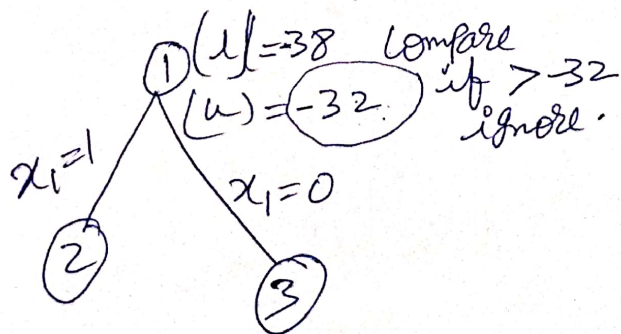 1 (l) = -38 compare
(u) = -32. if > -32
ignore.
x₁=1
x₁=0
2
3